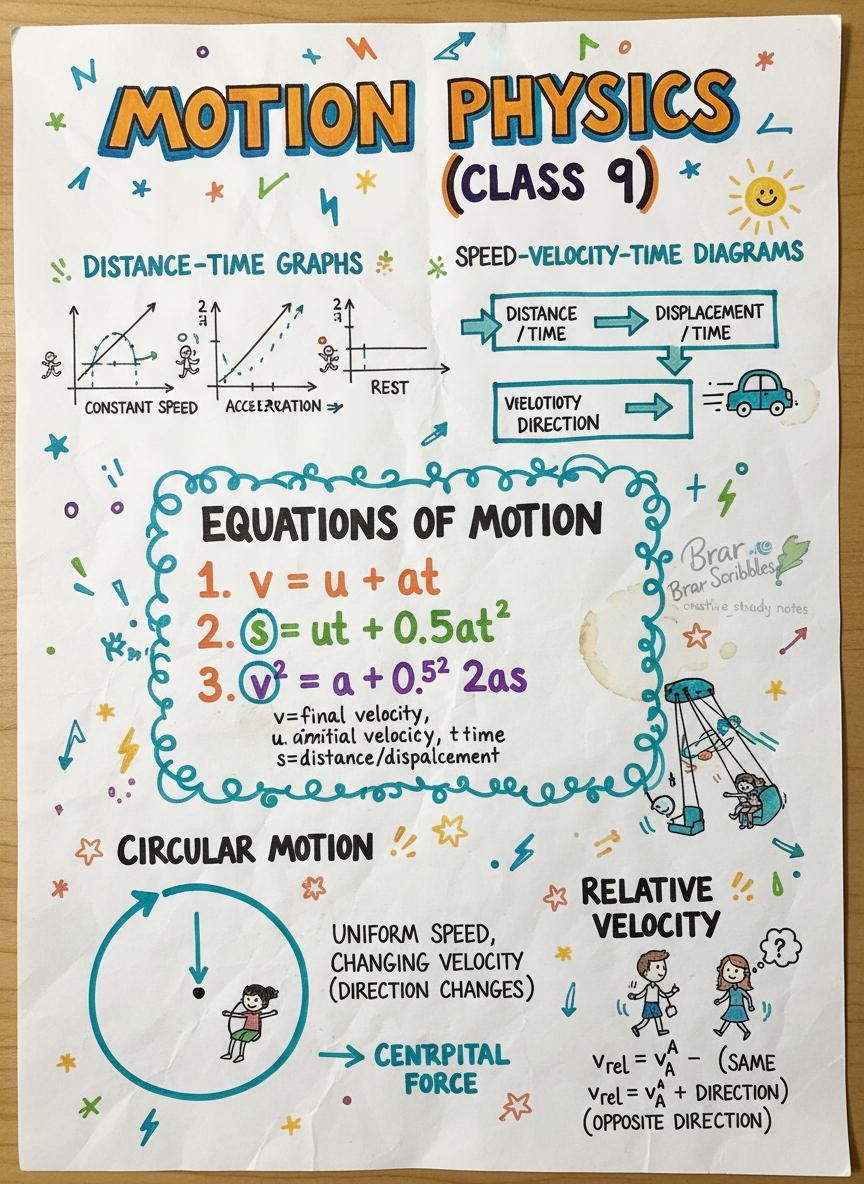 MOTION PHYSICS
(CLASS 9)
DISTANCE-TIME GRAPHS
CONSTANT SPEED
ACCEERATION
REST
SPEED-VELOCITY-TIME DIAGRAMS
DISTANCE
/TIME
DISPLACEMENT
/TIME
VIELOTIOTY
DIRECTION
EQUATIONS OF MOTION
1. v = u + at
2. s = ut + 0.5at²
3. v² = a + 0.5² 2as
v=final velocity,
u. amitial velocicy, t time
s=distance/dispalcement
Brar
Brar Scribbles
creative study notes
CIRCULAR MOTION
UNIFORM SPEED,
CHANGING VELOCITY
(DIRECTION CHANGES)
CENTRPITAL
FORCE
RELATIVE
VELOCITY
?
vrel = vᴬA - (SAME
vrel = vᴬA + DIRECTION)
(OPPOSITE DIRECTION)